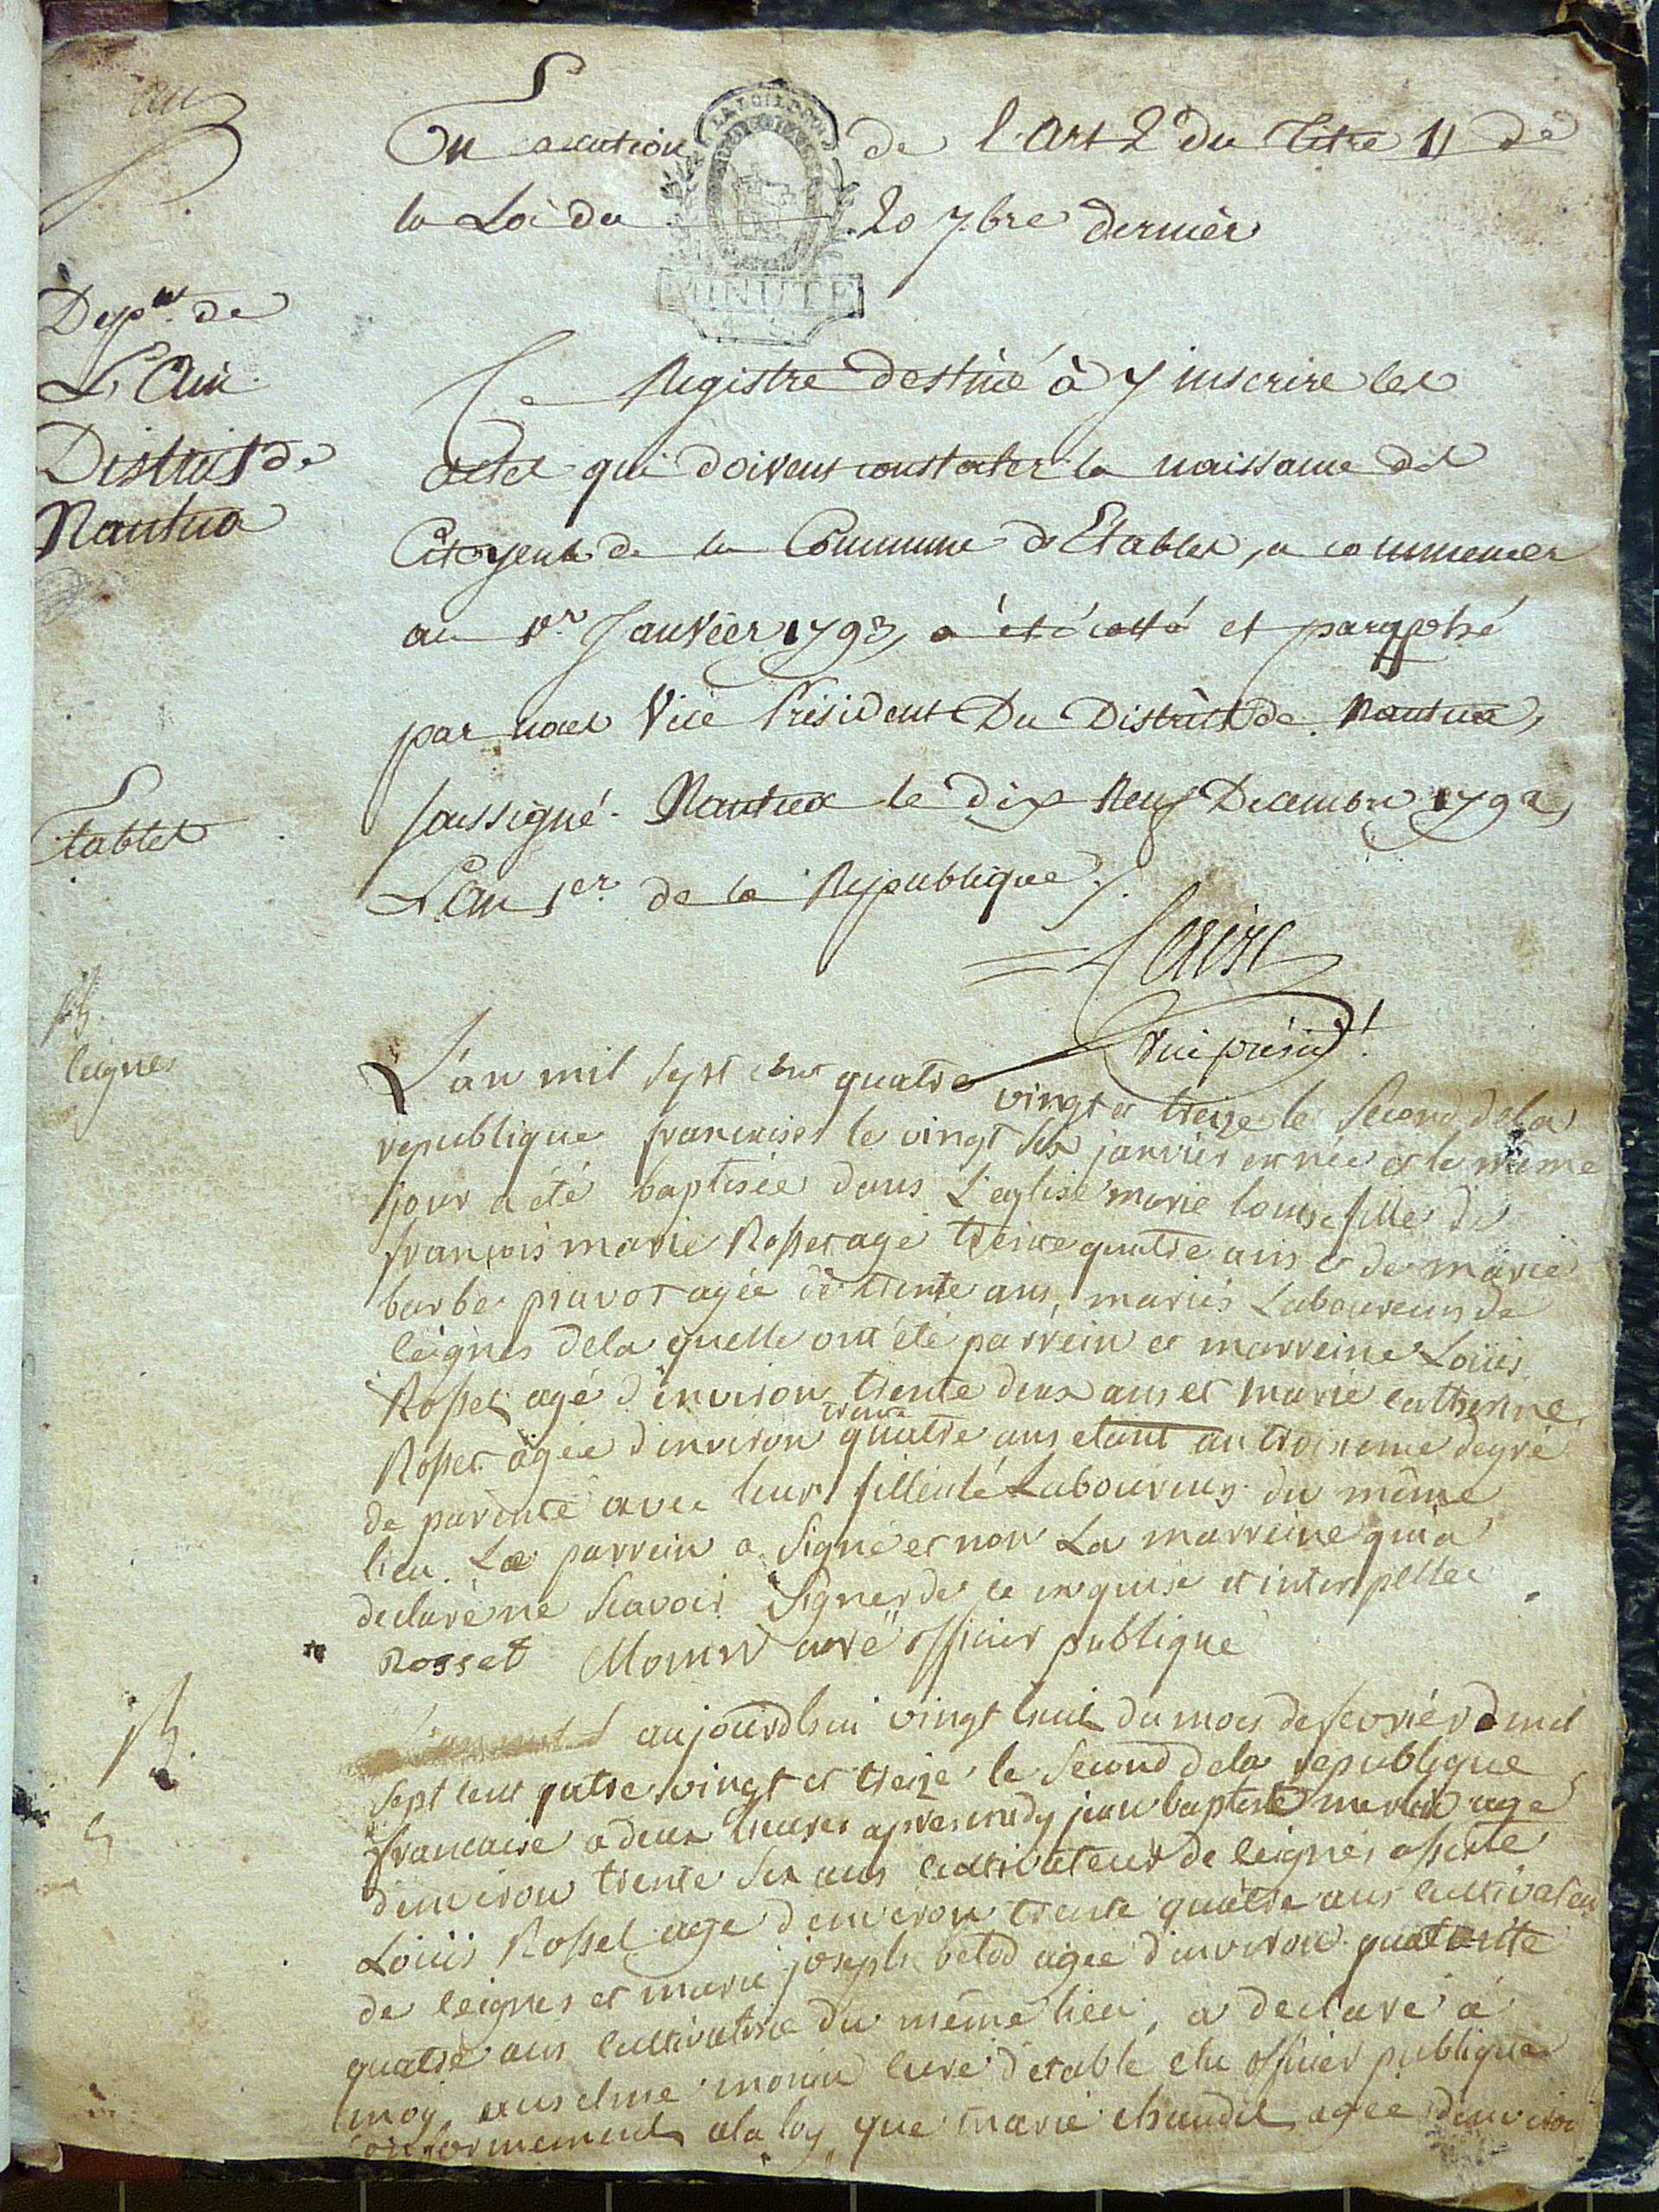 En Execution de l'Art 2 du Titre 11 de
la Loi du 20 7.bre dernier
MINUTE
Dep.nt de
L'Ain
District de
Nantua
Ce Registre destiné à y inscrire les
actes qui doivent constater la naissance des
Citoyens de la Commune d'Etables, a commencer
au 1er Janvier 1793, a été cotté et paraphé
par nous Vice Président Du District de Nantua,
soussigné. Nantua le dix Neuf Decembre 1792,
L'an 1er de la Republique.
Etables
vice présid.t
leignes
L'an mil sept cent quatre vingt et treize le second de la
republique francaise le vingt six janvier est née et le meme
jour a été baptisée dans L'eglise marie louise fille de
françois marie Rosset agé trente quatre ans et de marie
barbe pravot agée de trente ans, mariés Laboureurs de
leignes de la quelle ont été parrein et marreine Loüis
Rosset agé d'environ trente deux ans et marie catherine
Rosset agée d'environ trente quatre ans etant au troisieme degré
de parenté avec leur filleule Laboureurs du même
lieu. Le parrein a signé et non La marreine qui a
declaré ne scavoir signer de ce enquise et interpellee
Rosset Monin curé officier publique
aujourdhui vingt huit du mois de fevrier mil
sept cent quatre vingt et treize le second de la republique
francaise a deux heures apres midy jean baptiste agé
d'environ trente six ans cultivateur de leignes assisté
Loüis Rosset agé d'environ trente quatre ans cultivateur
de leignes et marie joseph agée d'environ quarante
quatre ans cultivatrice du même lieu, a declaré à
moy anselme monin curé d'etable elu officier publique
conformement a la loy que marie agée d'environ